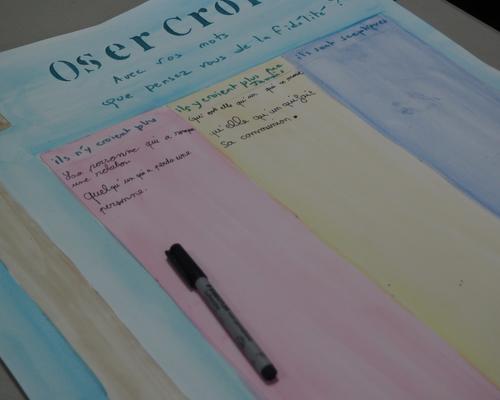 Oser croi
Avec vos mots
que pensez vous de la fidélité ?
ils n'y croient plus
La personne qui a rompu
une relation.
Quelqu'un qui a perdu une
personne.
ils y croient plus que
jamais
qui est elle qu'un qui
qu'elle qu'un qui fait
sa communion.
ils sont sceptiques